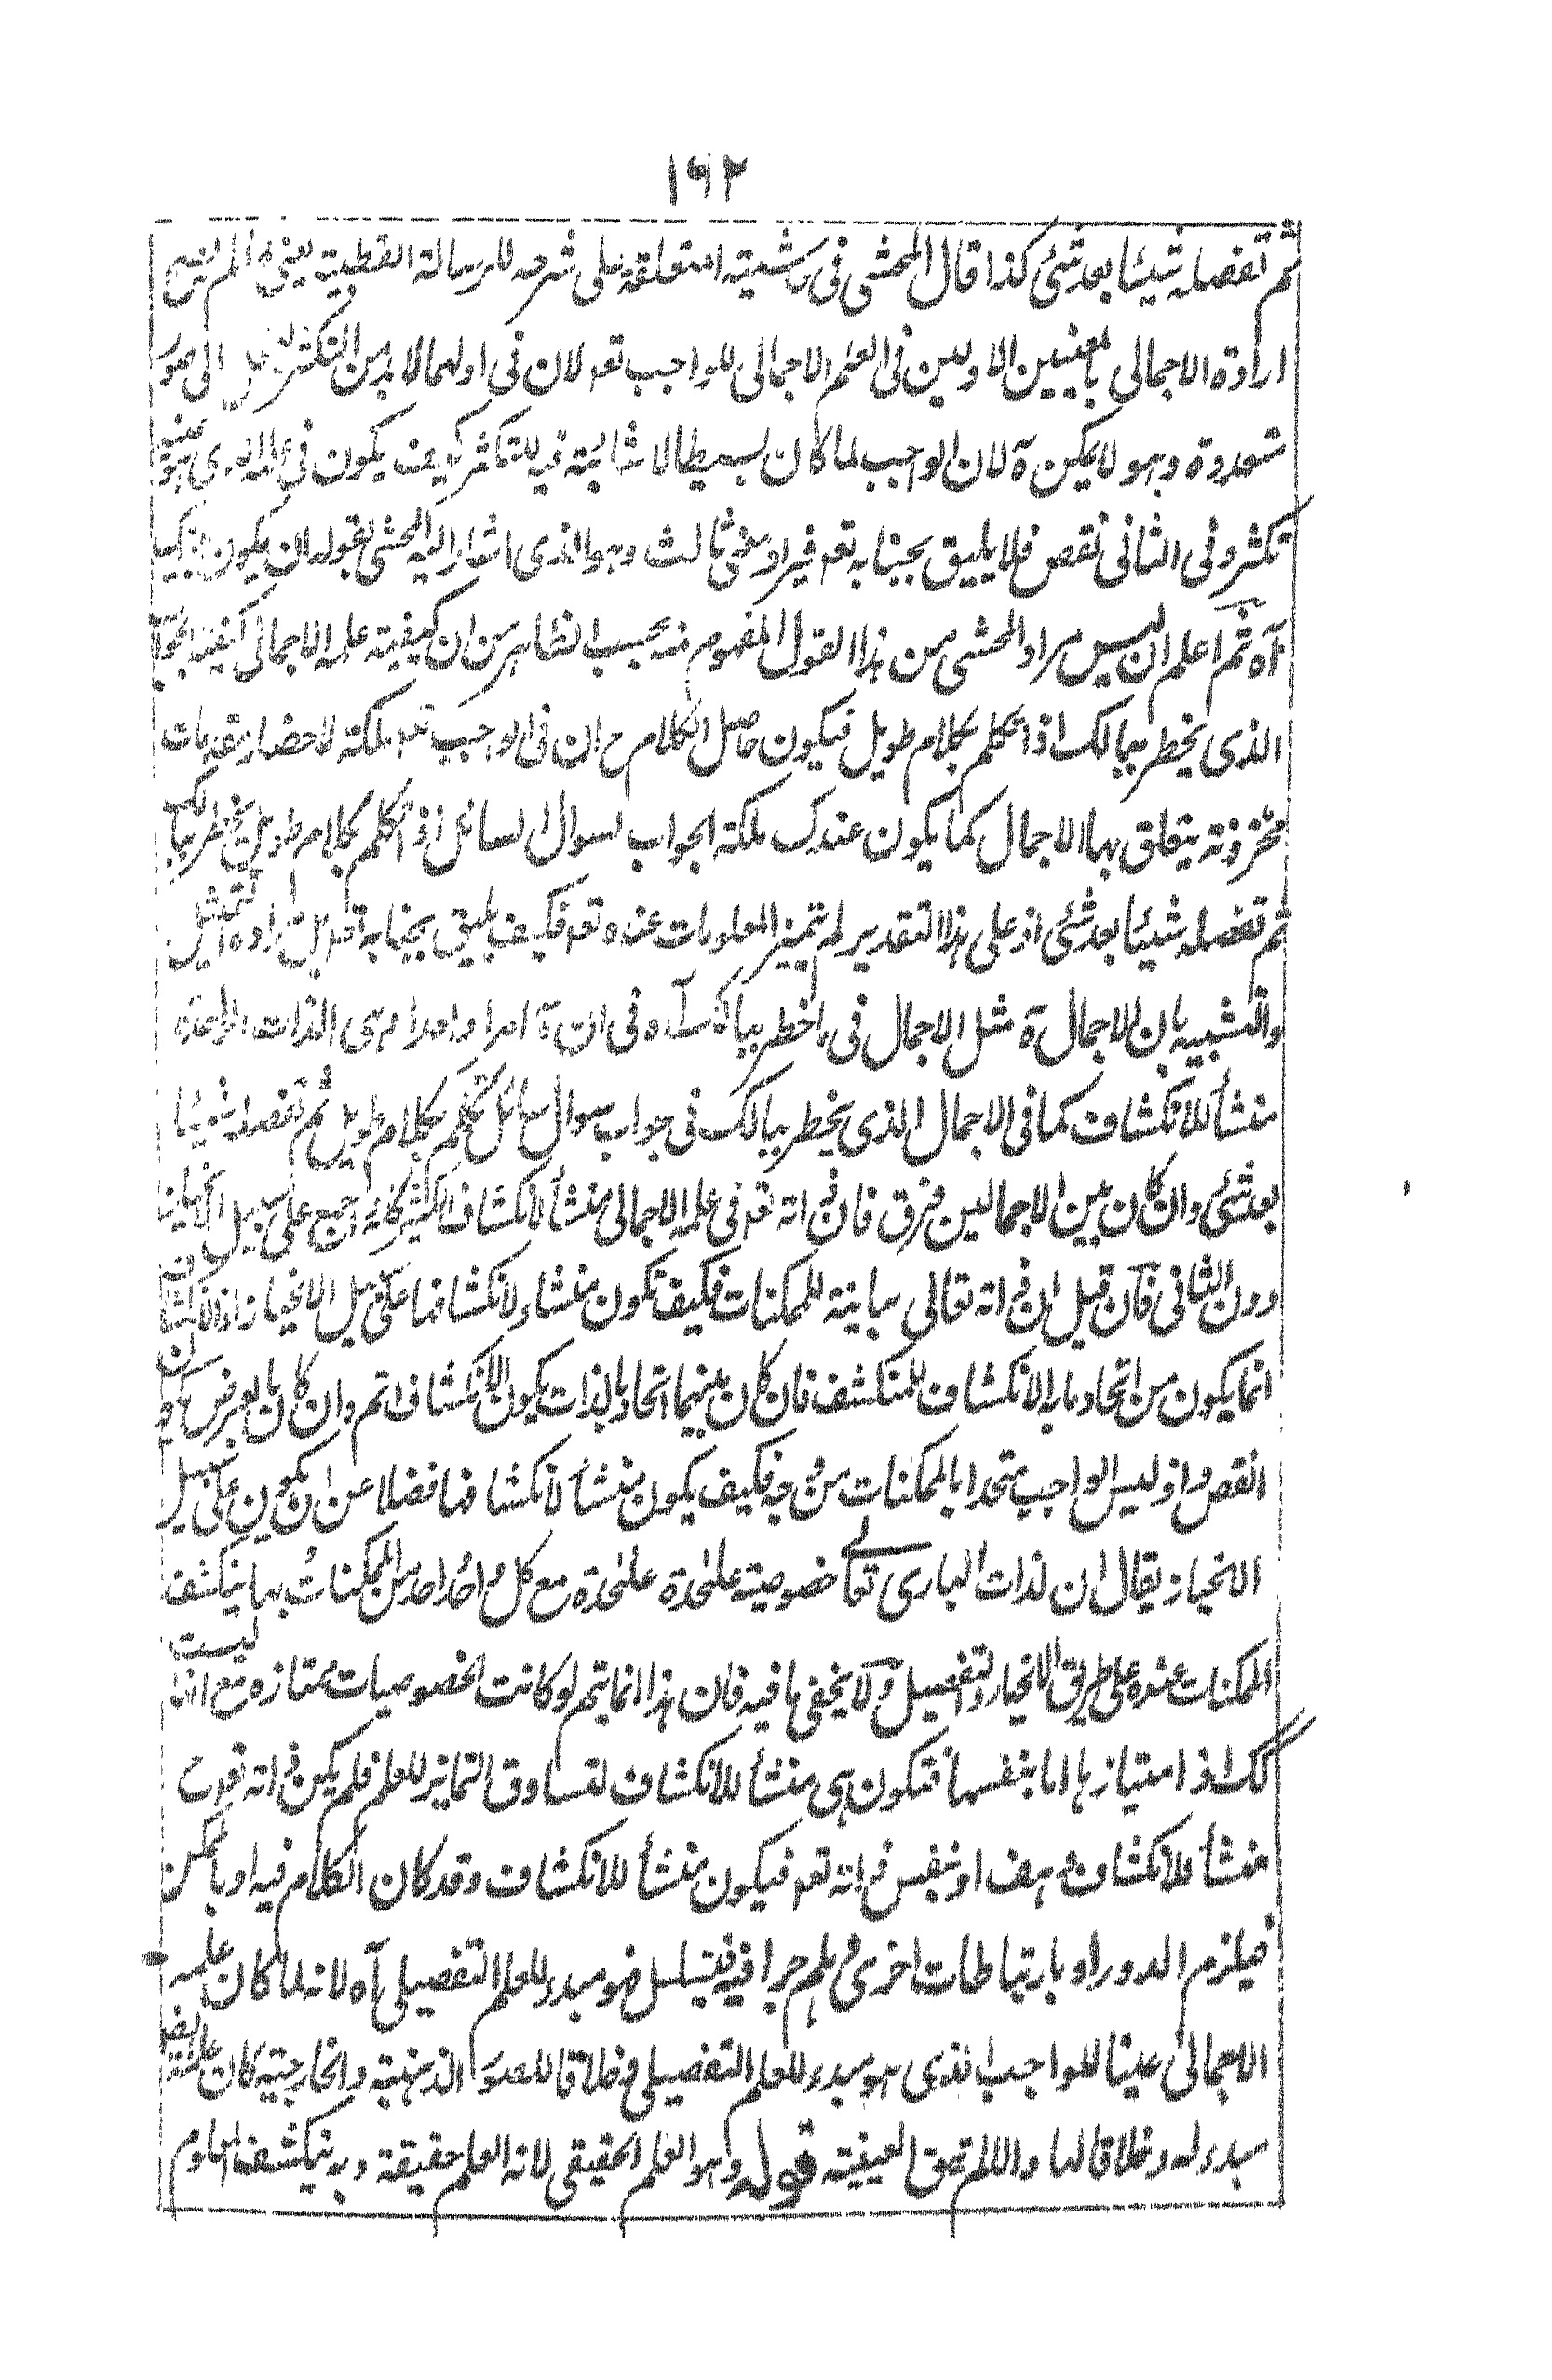 ١٩٢
ثم تفصله شيئا بعد شئ كذا قال المحشى فى حاشيته المتعلقة على شرحه للرسالة القطبية يعنى لم
ارادة الاجمالى بالمعنيين الاولين فى العلم الاجمالى للواجب تعہ لان فى اولهما لا بد من التكثر الى صور
متعددة وهو لا يمكن ة لان الواجب لما كان بسيطا لا شائبة فيه للتكثر كيف يكون فى علمه الذى هو عينه
تكثر وفى الثانى نقص فلا يليق بجنابه تعہ فيراد معنى ثالث وهو الذى اشار اليه المحشى بقوله ان يكون
آه ثم اعلم ان ليس مراد المحشى من هذا القول المفهوم منه بحسب الظاهر من ان كيفية علمه الاجمالى كيفية الجواب
الذى يخطر ببالك اذا تكلم بكلام طويل فيكون حاصل الكلام ح ان فى الواجب تعہ ملكة لاحضار مقدمات
مخزونة يتعلق بها الاجمال كما يكون عندك ملكة الجواب لسوال السائل اذا تكلم بكلام طويل يخطر ببالك
ثم تفصله شيئا بعد شئ اذ على هذا التقدير لم يتميز المعلومات عنده تعہ فكيف يليق بجنابه تعہ بل مراده التمثيل
والتشبيه بان الاجمال ة مثل الاجمال فى ما خطر ببالك آه وفى ان ة امرا واحدا هى الذات الواحدة
منشأ للانكشاف كما فى الاجمال الذى يخطر ببالك فى جواب سوال سائل تكلم بكلام طويل ثم تفصله شيئا
بعد شئ وان كان بين الاجمالين فرق فان ذاته تعہ فى علمه الاجمالى منشأ لانكشاف الكثير على سبيل الانحياز
دون الثانى فان قيل ان ذاته تعالى مباينة للممكنات فكيف تكون منشاء لانكشافها على سبيل الانحياز اذ الانكشاف
انما يكون من اتحاد ما به الانكشاف للمنكشف فان كان بينهما اتحاد بالذات يكون الانكشاف اتم وان كان بالعرض يكون
انقص واذ ليس الواجب متحدا بالممكنات من وجه فكيف يكون منشأ لانكشافها فضلا عن ان يكون على سبيل
الانحياز يقال ان لذات البارى تعالى خصوصية علىٰحدة علىٰحدة مع كل واحد واحد من الممكنات بها ينكشف
الممكنات عنده على طريق الانحياز والتفصيل ولا يخفى ما فيه فان هذا انما يتم لو كانت الخصوصيات ممتازة مع انها ليست
كك اذ امتيازها اما بنفسها فتكون هى منشأ للانكشاف لتساوق التمايز للعلم فلم يكن ذاته تعہ ح
منشأ للانكشاف هف او بنفس ذاته تعہ فيكون منشأ للانكشاف وقد كان الكلام فيه او بالممكن
فيلزم الدور او بارتباطات اخرى وهلم جرا فيه فيتسلسل فهو مبدء للعلم التفصيلى آه لانه لما كان علمه
الاجمالى عينا للواجب الذى هو مبدء للعلم التفصيلى وخلاقا للصور الذهنية والخارجية كان علمه ايضا
مبدء له وخلاقا لها والا لم تبق العينية قوله وهو العلم الحقيقى لانه العلم حقيقة وبه ينكشف المعلوم